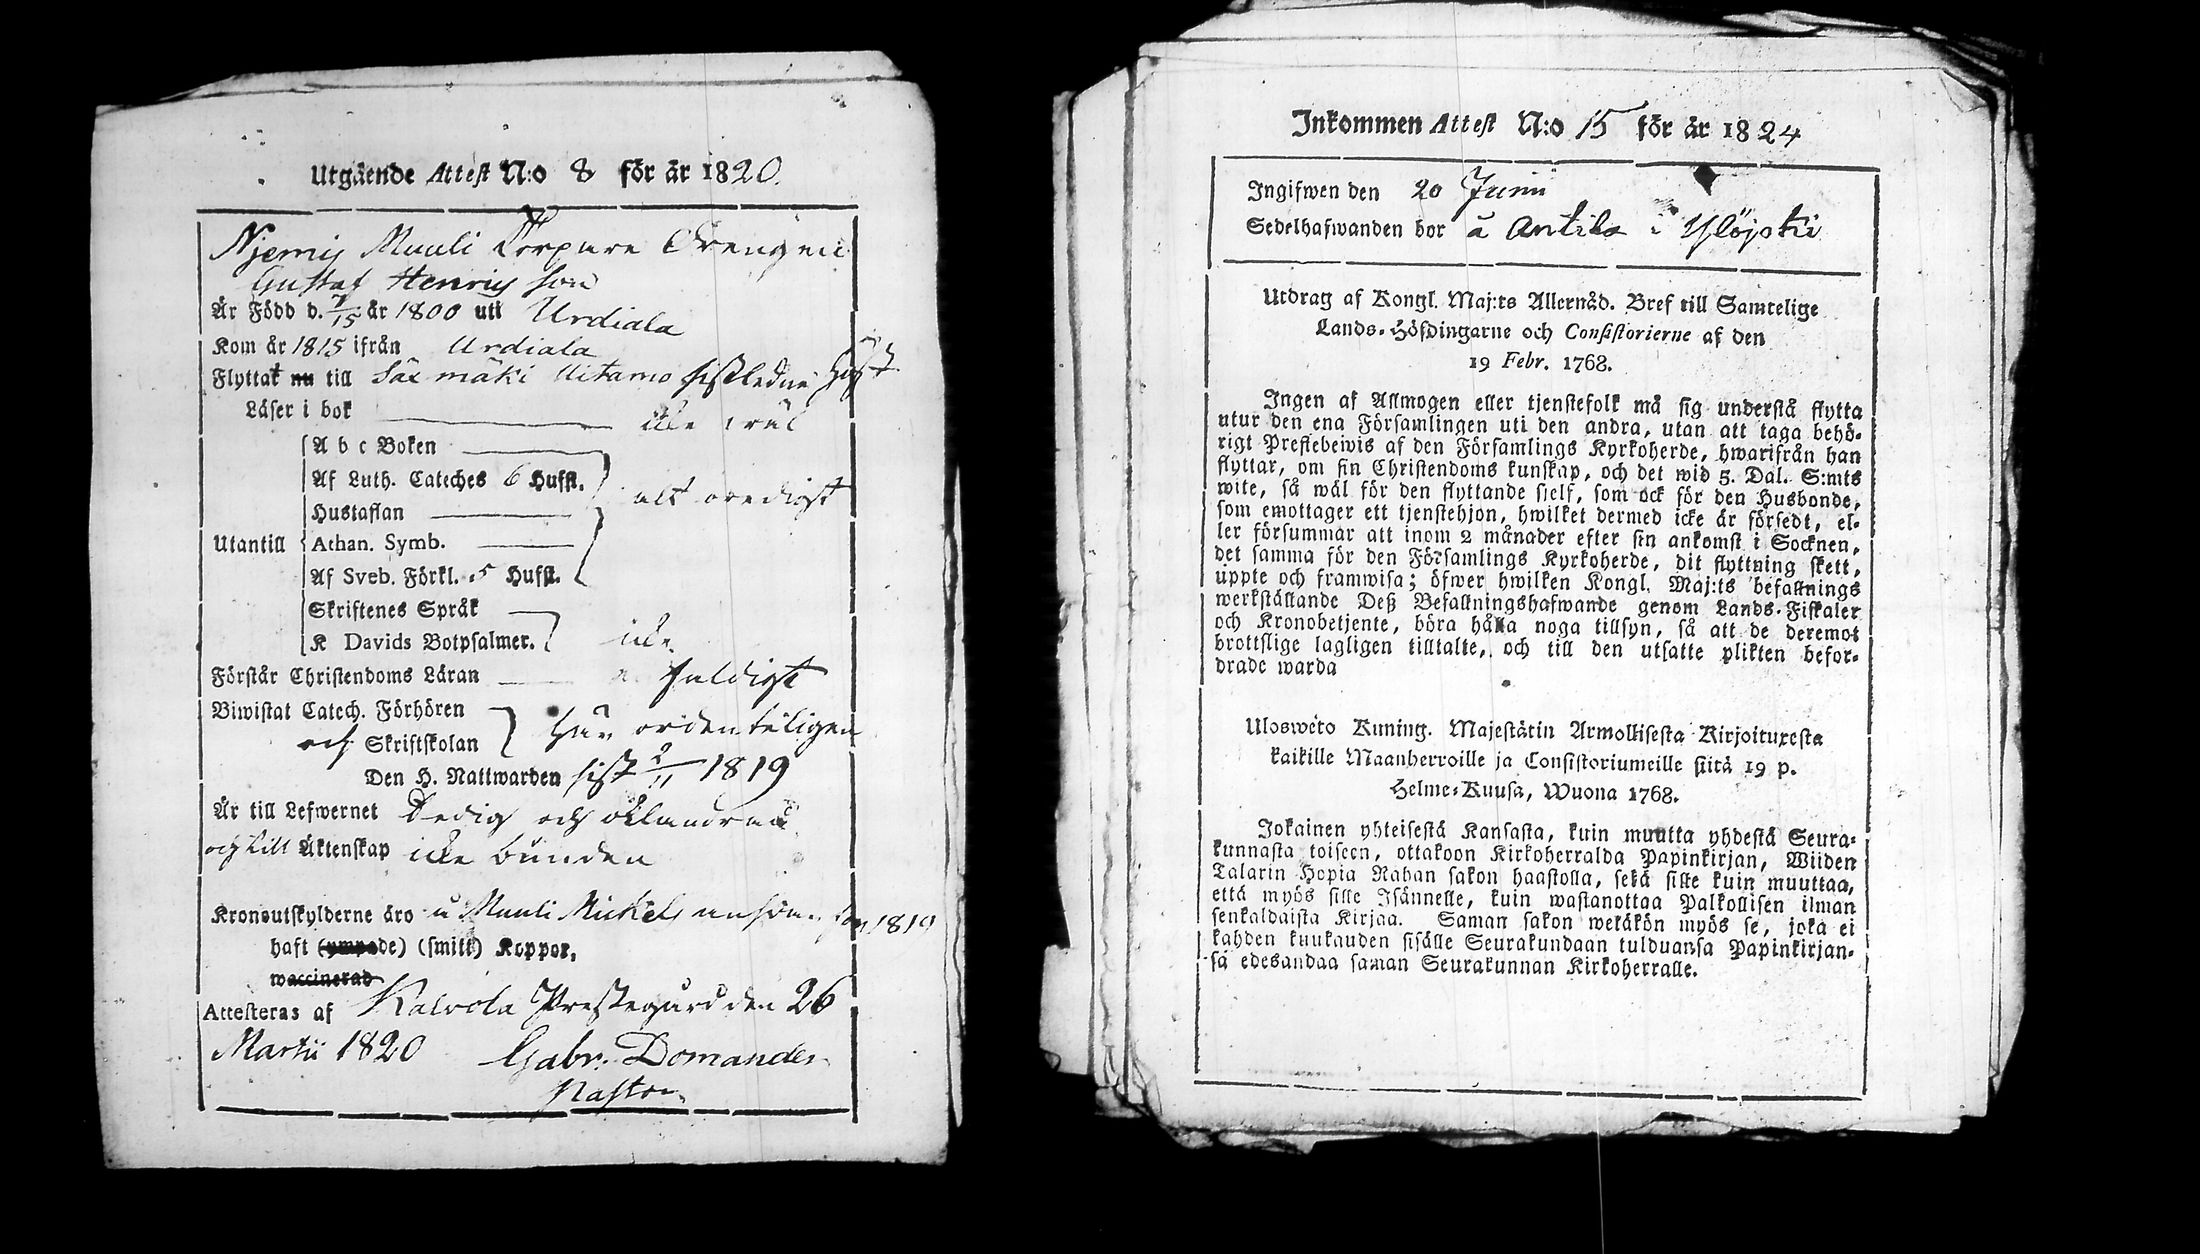 Utgående Attest N:o 8 för år 1820.
Njemis Muuli Torpare Drengen
Gustaf Henrics son
Är Född d. 7/15 år 1800 uti Urdiala
Kom år 1815 ifrån Urdiala
Flyttat nu till Säxmäki Uitamo sistledne Höst
Läser i bok icke väl
A b c Boken
Af Luth. Cateches 6 Hufst.
alt oredigt
Hustaflan
Utantill Athan. Symb.
Af Sveb. Förkl. 5 Hufst.
Skriftenes Språk
K Davids Botpsalmer. icke
Förstår Christendoms Läran
Biwistat Catech. Förhören
och Skriftskolan ordenteligen
Den H. Nattwarden sist 9/11 1819
Är till Lefwernet Dedig och oklandrad
och till Äktenskap icke bunden
Kronoutskylderne äro å Muuli Mickels 1819
haft (ympade) (smitt) Koppor.
waccinerad
Attesteras af Kalvola Prestegård den 26
Martii 1820 Gabr. Domander
Pastor.
Inkommen Attest N:o 15 för år 1824
Ingifwen den 20 Junii
Sedelhafwanden bor å Antila i Ylöjoki
Utdrag af Kongl. Maj:ts Allernåd. Bref till Samtelige
Lands-Höfdingarne och Consistorierne af den
19 Febr. 1768.
Ingen af Allmogen eller tjenstefolk må sig understå flytta
utur den ena Församlingen uti den andra, utan att taga behö-
rigt Prestebewis af den Församlings Kyrkoherde, hwarifrån han
flyttar, om sin Christendoms kunskap, och det wid 5. Dal. S:mts
wite, så wäl för den flyttande sielf, som ock för den Husbonde,
som emottager ett tjenstehjon, hwilket dermed icke är försedt, el-
ler försummar att inom 2 månader efter sin ankomst i Socknen,
det samma för den Församlings Kyrkoherde, dit flyttning skett,
uppte och framwisa; öfwer hwilken Kongl. Maj:ts befallnings
werkställande Deß Befallningshafwande genom Lands-Fiskaler
och Kronobetjente, böra hålla noga tillsyn, så att de deremot
brottslige lagligen tilltalte, och till den utsatte plikten befor-
drade warda
Uloswéto Kuning. Majestätin Armollisesta Kirjoituxesta
kaikille Maanherroille ja Consistoriumeille siitä 19 p.
Helme-Kuusa, Wuona 1768.
Jokainen yhteisestä Kansasta, kuin muutta yhdestä Seura-
kunnasta toiseen, ottakoon Kirkoherralda Papinkirjan, Wiiden
Talarin Hopia Rahan sakon haastolla, sekä sille kuin muuttaa,
että myös sille Isännelle, kuin wastanottaa Palkollisen ilman
senkaldaista Kirjaa. Saman sakon wetäkön myös se, joka ei
kahden kuukauden sisälle Seurakundaan tulduansa Papinkirjan-
sa edesandaa saman Seurakunnan Kirkoherralle.